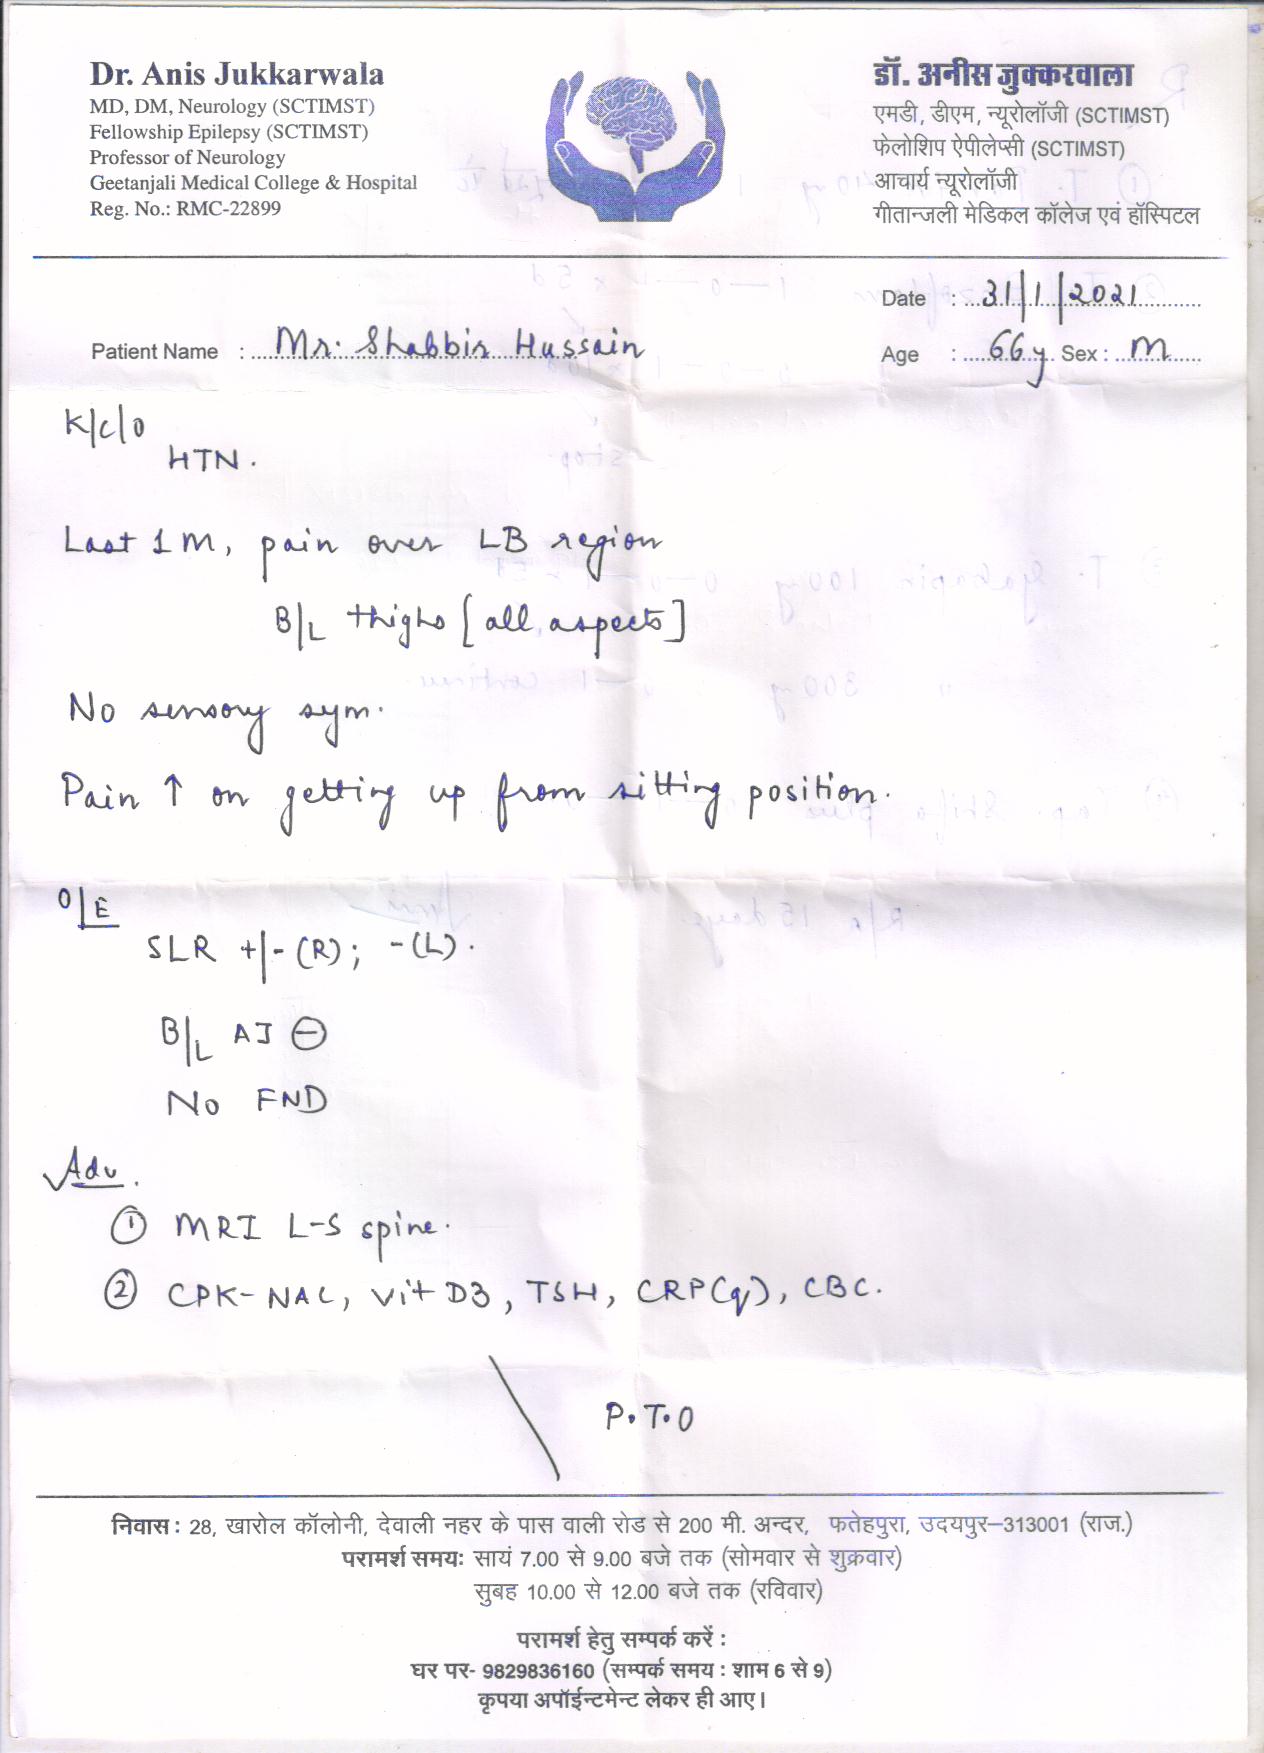 Dr. Anis Jukkarwala
MD, DM, Neurology (SCTIMST)
Fellowship Epilepsy (SCTIMST)
Professor of Neurology
Geetanjali Medical College & Hospital
Reg. No.: RMC-22899
डॉ. अनीस जुक्करवाला
एमडी, डीएम, न्यूरोलॉजी (SCTIMST)
फेलोशिप ऐपीलेप्सी (SCTIMST)
आचार्य न्यूरोलॉजी
गीतान्जली मेडिकल कॉलेज एवं हॉस्पिटल
Date : 31/1/2021
Patient Name : Mr. Shabbir Hussain
Age : 66y Sex : M
K/c/o
HTN.
Last 1 M, pain over LB region
B/L thighs [all aspects]
No sensory sym.
Pain ↑ on getting up from sitting position.
O/E
SLR +/- (R); -(L).
B/L AJ ⊖
No FND
Adv.
① MRI L-S spine.
② CPK-NAC, Vit D3, TSH, CRP(q), CBC.
P.T.O
निवास : 28, खारोल कॉलोनी, देवाली नहर के पास वाली रोड से 200 मी. अन्दर, फतेहपुरा, उदयपुर–313001 (राज.)
परामर्श समयः सायं 7.00 से 9.00 बजे तक (सोमवार से शुक्रवार)
सुबह 10.00 से 12.00 बजे तक (रविवार)
परामर्श हेतु सम्पर्क करें :
घर पर- 9829836160 (सम्पर्क समय : शाम 6 से 9)
कृपया अपॉईन्टमेन्ट लेकर ही आए।